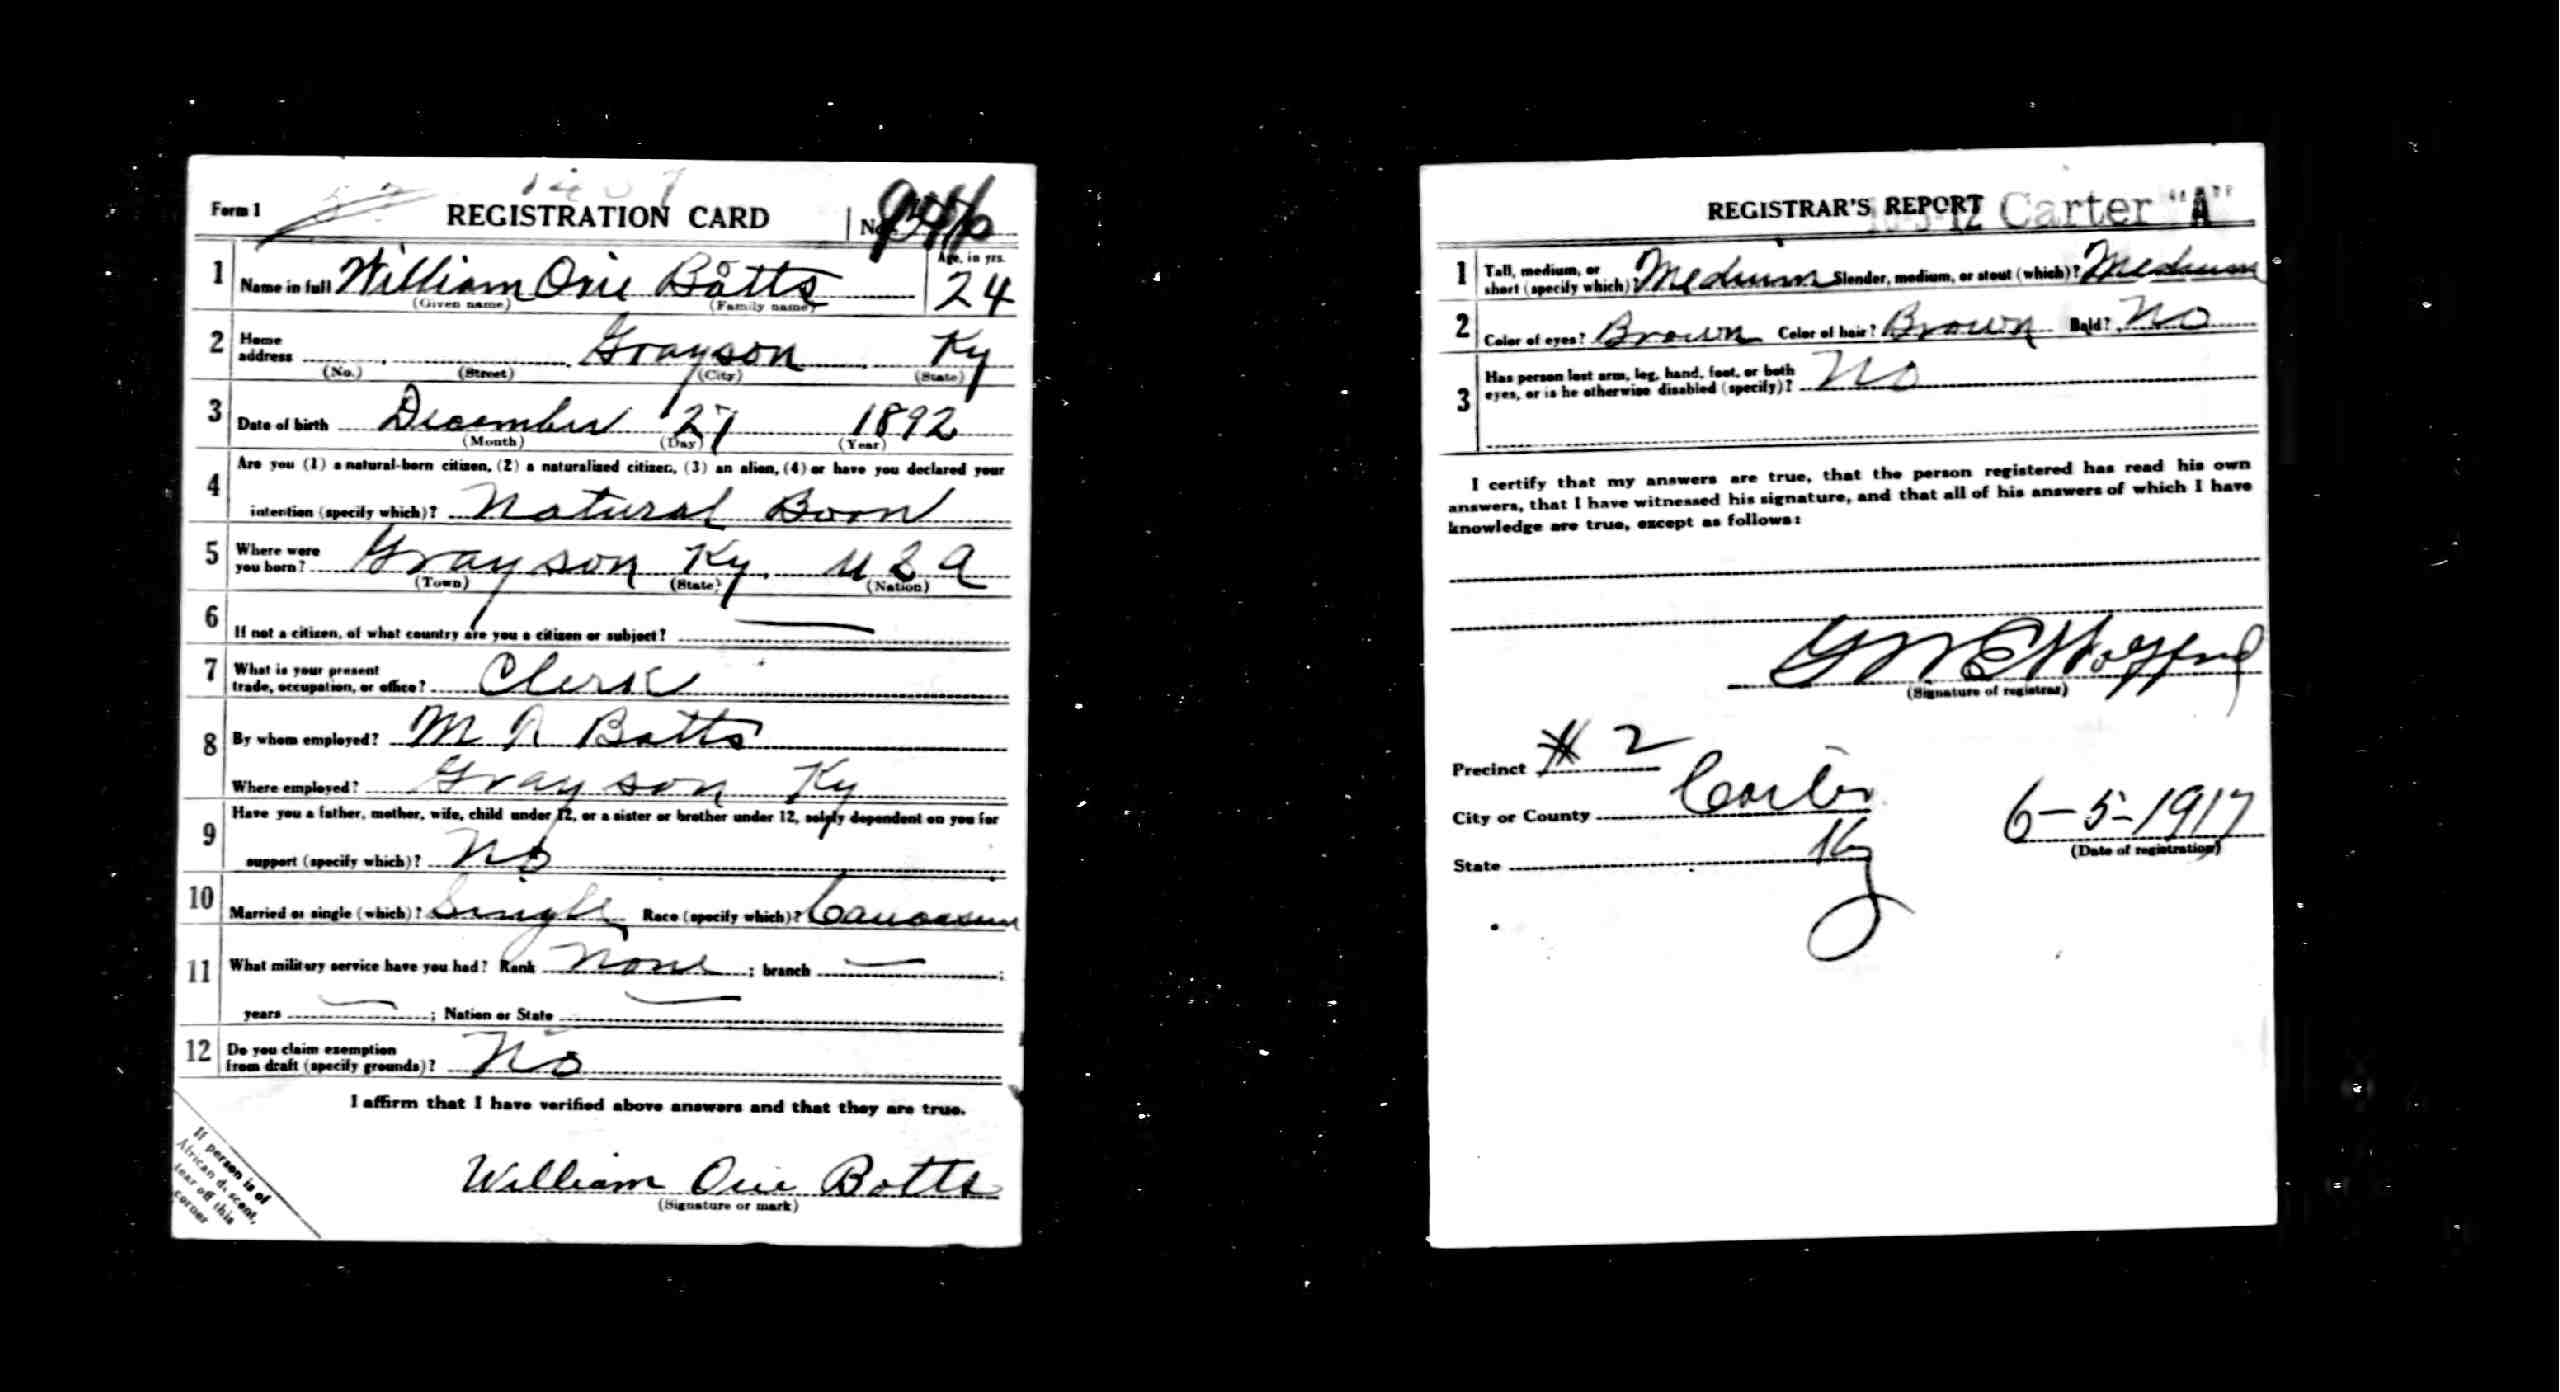 Form 1
REGISTRATION CARD No.
1 Name in full William Orie Botts Age, in yrs. 24
(Given name) (Family name)
2 Home address Grayson Ky
(No.) (Street) (City) (State)
3 Date of birth December 27 1892
(Month) (Day) (Year)
4 Are you (1) a natural-born citizen, (2) a naturalized citizen, (3) an alien, (4) or have you declared your
intention (specify which)? Natural Born
5 Where were you born? Grayson Ky. U S A
(Town) (State) (Nation)
6 If not a citizen, of what country are you a citizen or subject? —
7 What is your present trade, occupation, or office? Clerk
8 By whom employed? M Botts
Where employed? Grayson Ky
9 Have you a father, mother, wife, child under 12, or a sister or brother under 12, solely dependent on you for
support (specify which)? No
10 Married or single (which)? Single Race (specify which)? Caucasian
11 What military service have you had? Rank None ; branch — ;
years — ; Nation or State —
12 Do you claim exemption from draft (specify grounds)? No
I affirm that I have verified above answers and that they are true.
William Orie Botts
(Signature or mark)
If person is of
African descent,
tear off this
corner
REGISTRAR'S REPORT Carter "A"
1 Tall, medium, or short (specify which)? Medium Slender, medium, or stout (which)? Medium
2 Color of eyes? Brown Color of hair? Brown Bald? No
3 Has person lost arm, leg, hand, foot, or both eyes, or is he otherwise disabled (specify)? No
I certify that my answers are true, that the person registered has read his own
answers, that I have witnessed his signature, and that all of his answers of which I have
knowledge are true, except as follows:
(Signature of registrar)
Precinct # 2
City or County Carter
State Ky
6-5-1917
(Date of registration)